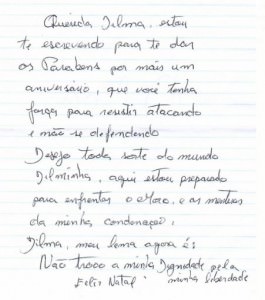 Querida Dilma, estou
te escrevendo para te dar
os Parabens por mais um
aniversário, que você tenha
força para resistir atacando
e não se defendendo
Desejo toda sorte do mundo
Dilminha, aqui estou preparado
para enfrentar o Moro, e as mentiras
da minha condenação.
Dilma, meu lema agora é:
Não troco a minha Dignidade pela
Feliz Natal minha liberdade